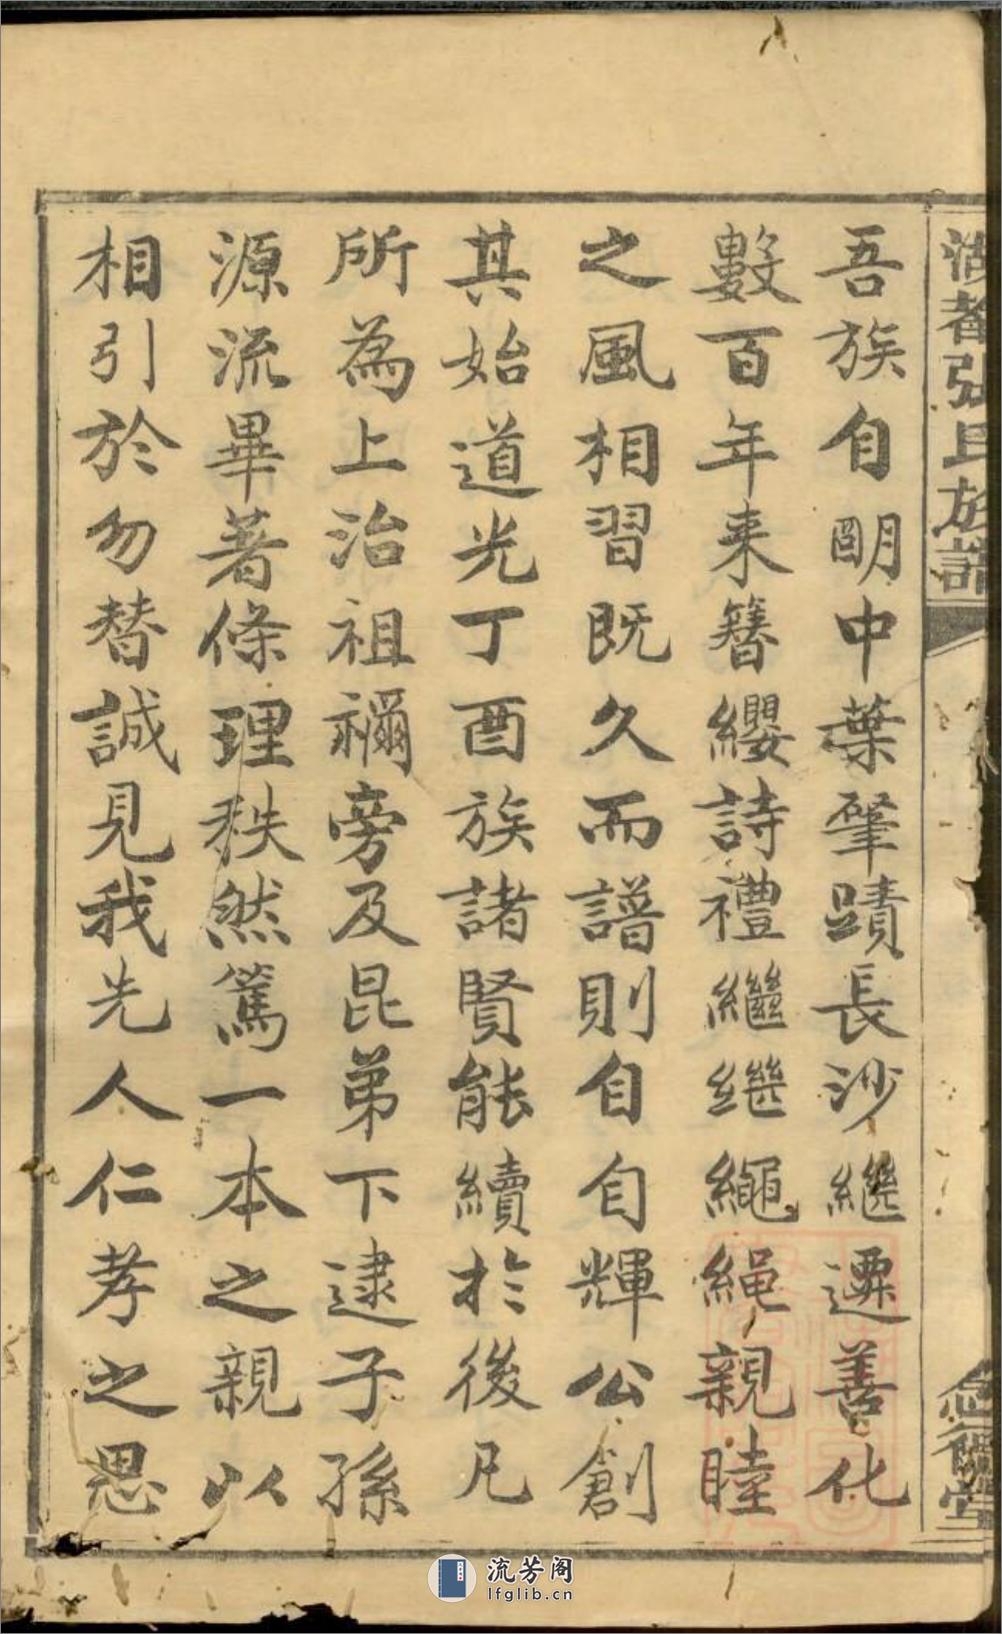 湖塘張氏族譜
吾族自明中葉肇蹟長沙繼遷善化
數百年来簪纓詩禮繼繼繩繩親睦
之風相習既久而譜則自自輝公創
其始道光丁酉族諸賢能續於後凡
所為上治祖禰旁及昆弟下逮子孫
源流畢著條理秩然篤一本之親以
相引於勿替誠見我先人仁孝之思
流芳阁
lfglib.cn